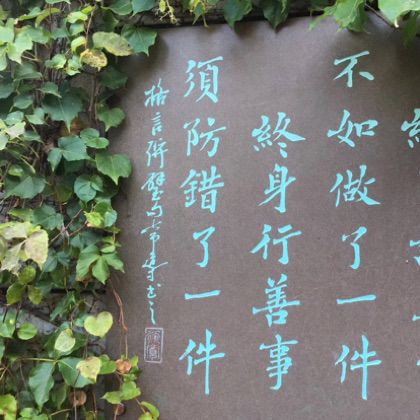 不如做了一件
終身行善事
須防錯了一件
格言聯璧句